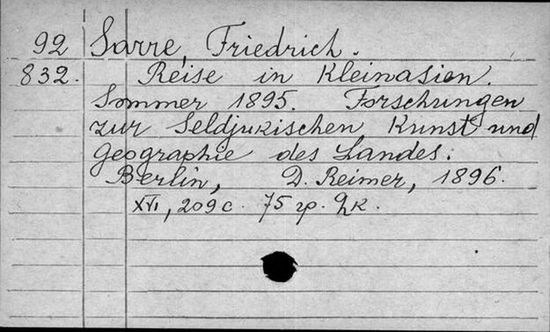 92 Sarre, Friedrich.
832. Reise in Kleinasien.
Sommer 1895. Forschungen
zur Seldjukischen Kunst und
Geographie des Landes.
Berlin, D. Reimer, 1896.
XVI, 209 с. 75 гр. 2к.